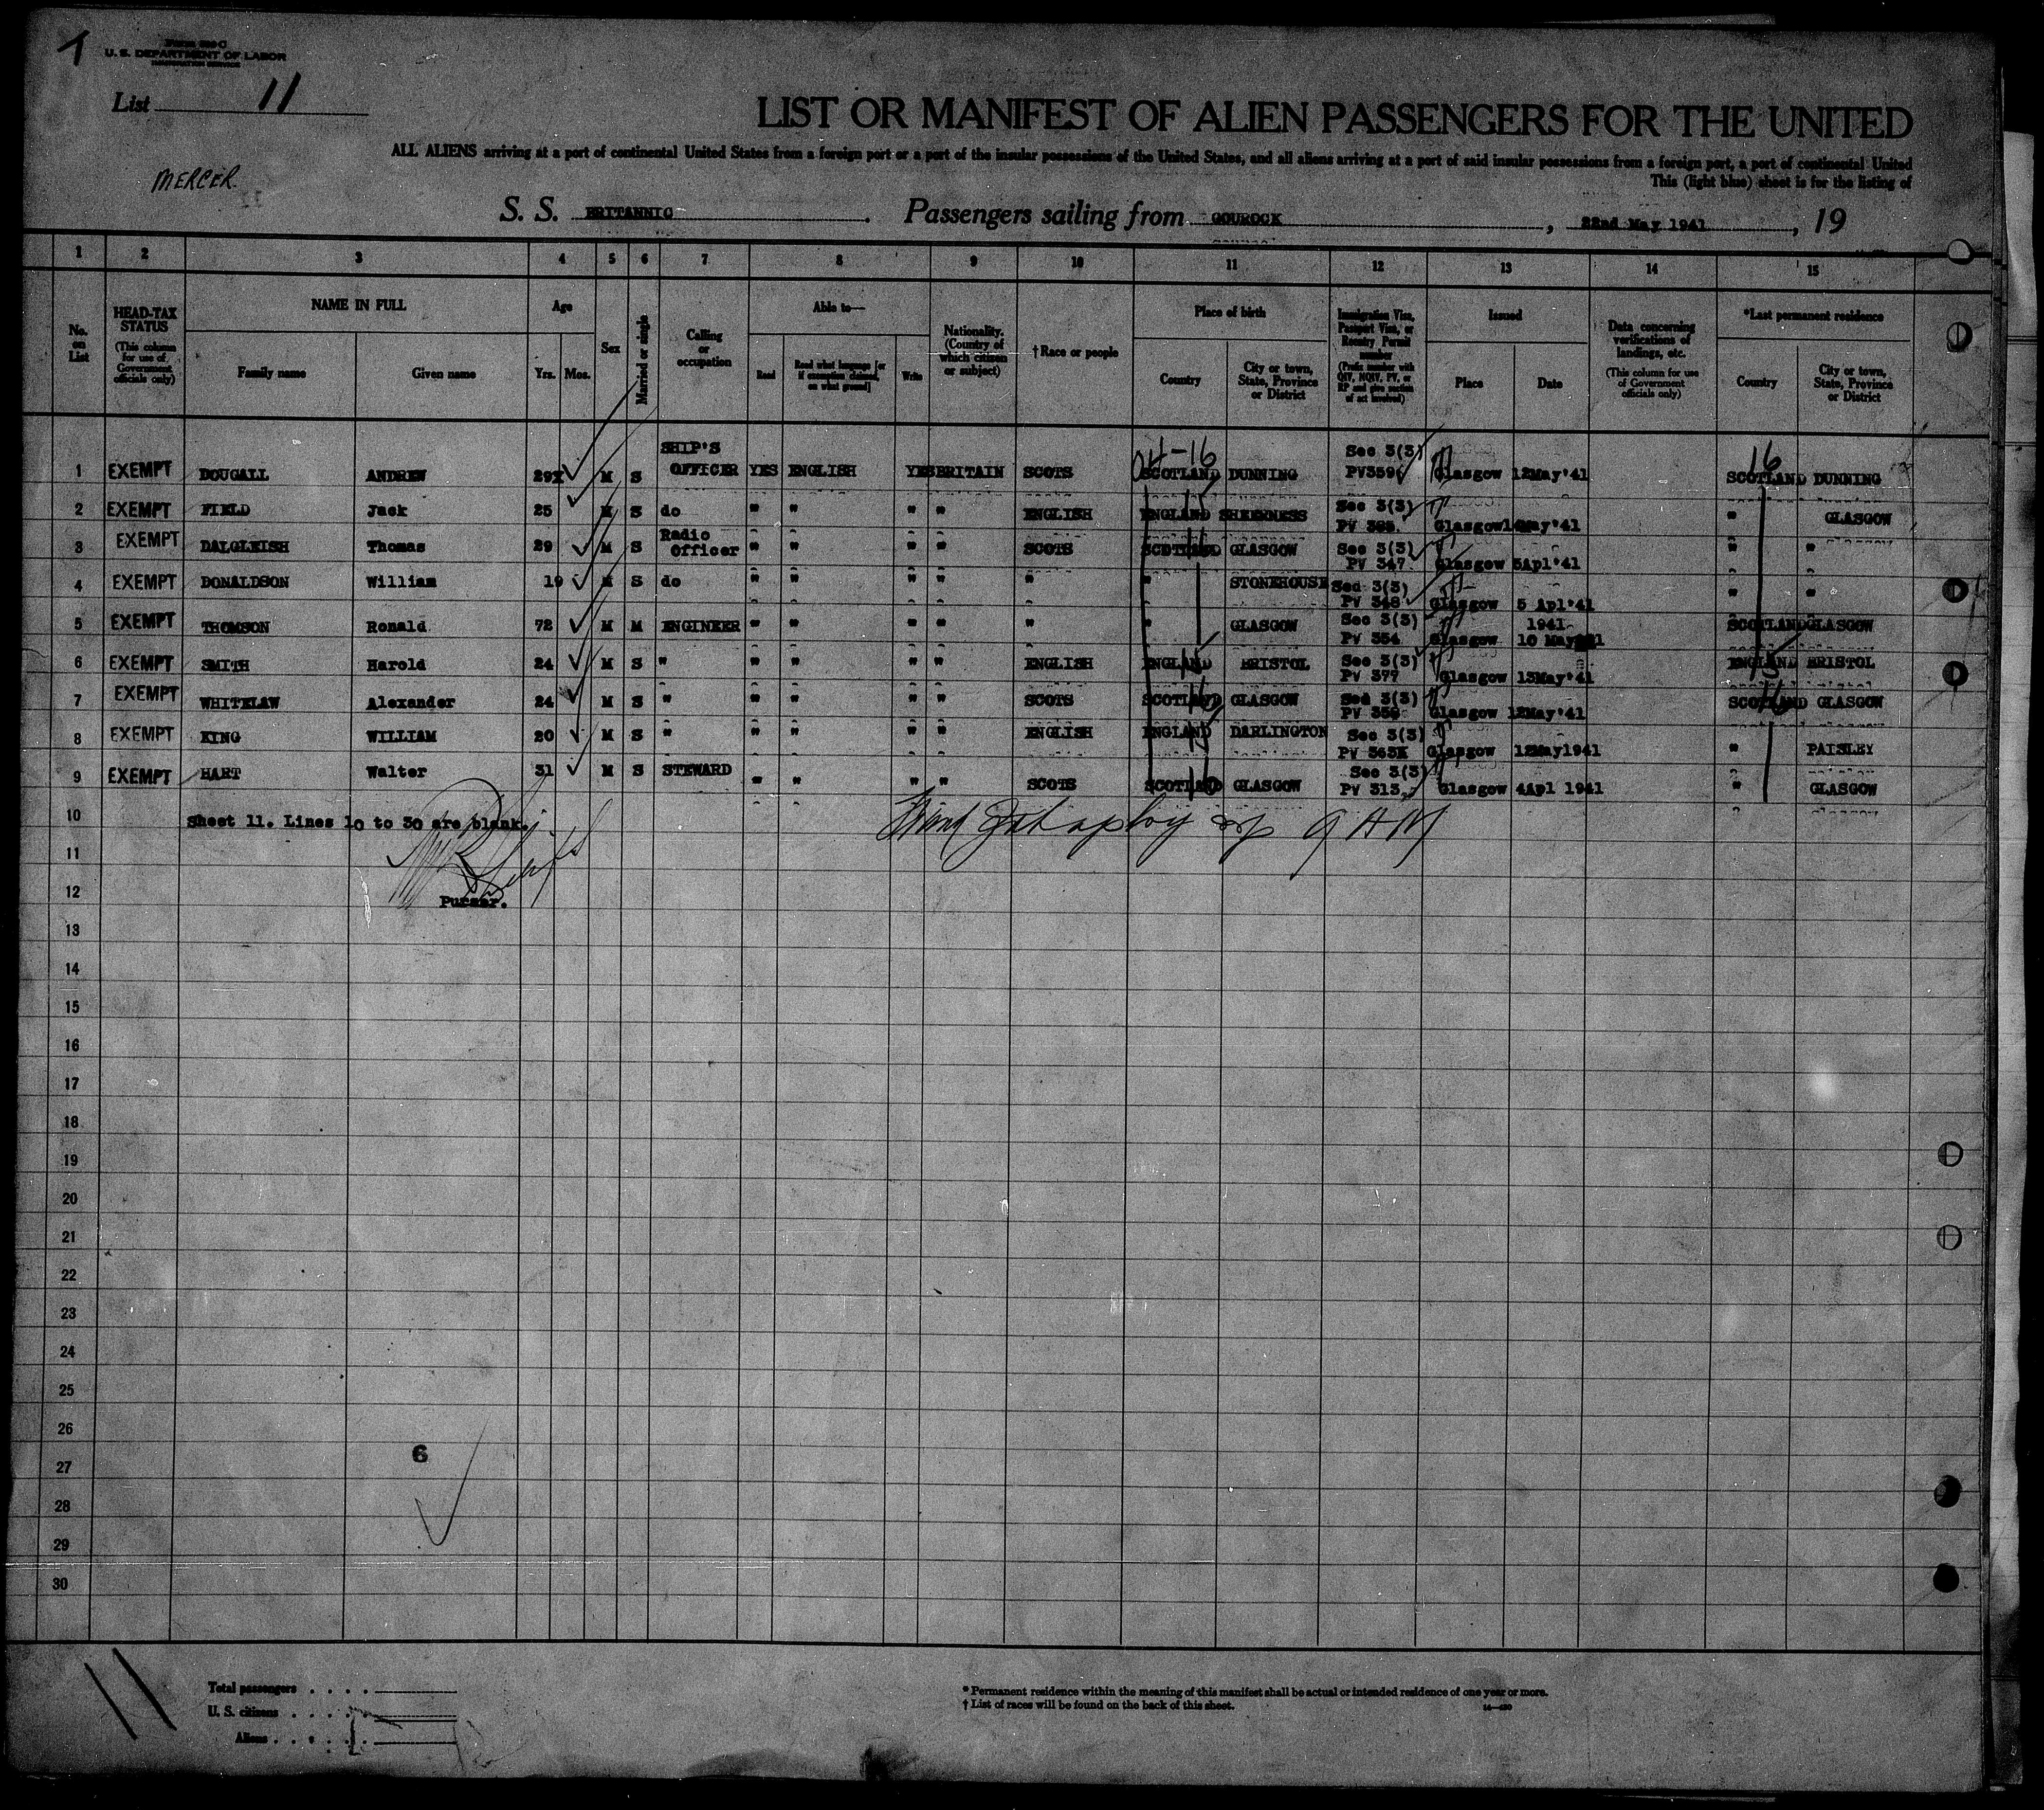 1
U. S. DEPARTMENT OF LABOR
List 11
MERCER
LIST OR MANIFEST OF ALIEN PASSENGERS FOR THE UNITED
ALL ALIENS arriving at a port of continental United States from a foreign port or a port of the insular possessions of the United States, and all aliens arriving at a port of said insular possessions from a foreign port, a port of continental United
This (light blue) sheet is for the listing of
S. S. BRITANNIC. Passengers sailing from GOUROCK, 22nd May 1941, 19
1 2 3 4 5 6 7 8 9 10 11 12 13 14 15
No. on List
HEAD-TAX STATUS
(This column for use of Government officials only)
NAME IN FULL
Family name
Given name
Age
Yrs. Mos.
Sex
Married or single
Calling or occupation
Able to—
Read
Read what language [or if exemption claimed, on what ground]
Write
Nationality. (Country of which citizen or subject)
†Race or people
Place of birth
Country
City or town, State, Province or District
Immigration Visa, Passport Visa, or Reentry Permit number
(Prefix number with QIV, NQIV, PV, or RP and give section of act involved)
Issued
Place
Date
Data concerning verifications of landings, etc.
(This column for use of Government officials only)
*Last permanent residence
Country
City or town, State, Province or District
SHIP'S 04-16 Sec 3(3) 16
1 EXEMPT DOUGALL ANDREW 29 M S OFFICER YES ENGLISH YES BRITAIN SCOTS SCOTLAND DUNNING Glasgow 12May'41 SCOTLAND DUNNING
2 EXEMPT FIELD Jack 25 M S do " " " " ENGLISH ENGLAND SHEERNESS Sec 3(3) " GLASGOW
3 EXEMPT DALGLEISH Thomas 29 M S Radio Officer " " " " SCOTS SCOTLAND GLASGOW Sec 3(3) PV 347 Glasgow 5Apl'41 " "
4 EXEMPT DONALDSON William 19 M S do " " " " " " STONEHOUSE Sec 3(3) PV 348 Glasgow 5 Apl'41 " "
5 EXEMPT THOMSON Ronald 72 M M ENGINEER " " " " " " GLASGOW Sec 3(3) PV 354 Glasgow 10 May 1941 SCOTLAND GLASGOW
6 EXEMPT SMITH Harold 24 M S " " " " " ENGLISH ENGLAND BRISTOL Sec 3(3) PV 377 Glasgow 13May'41 ENGLAND BRISTOL
7 EXEMPT WHITELAW Alexander 24 M S " " " " " SCOTS SCOTLAND GLASGOW Sec 3(3) Glasgow 12May'41 SCOTLAND GLASGOW
8 EXEMPT KING WILLIAM 20 M S " " " " " ENGLISH ENGLAND DARLINGTON Sec 3(3) Glasgow 12May1941 " PAISLEY
9 EXEMPT HART Walter 31 M S STEWARD " " " " SCOTS SCOTLAND GLASGOW Sec 3(3) PV 313 Glasgow 4Apl 1941 " GLASGOW
10 Sheet 11. Lines 10 to 30 are blank.
11
12 Purser.
13
14
15
16
17
18
19
20
21
22
23
24
25
26
6
27
28
29
30
11
Total passengers
U. S. citizens
Aliens
* Permanent residence within the meaning of this manifest shall be actual or intended residence of one year or more.
† List of races will be found on the back of this sheet.